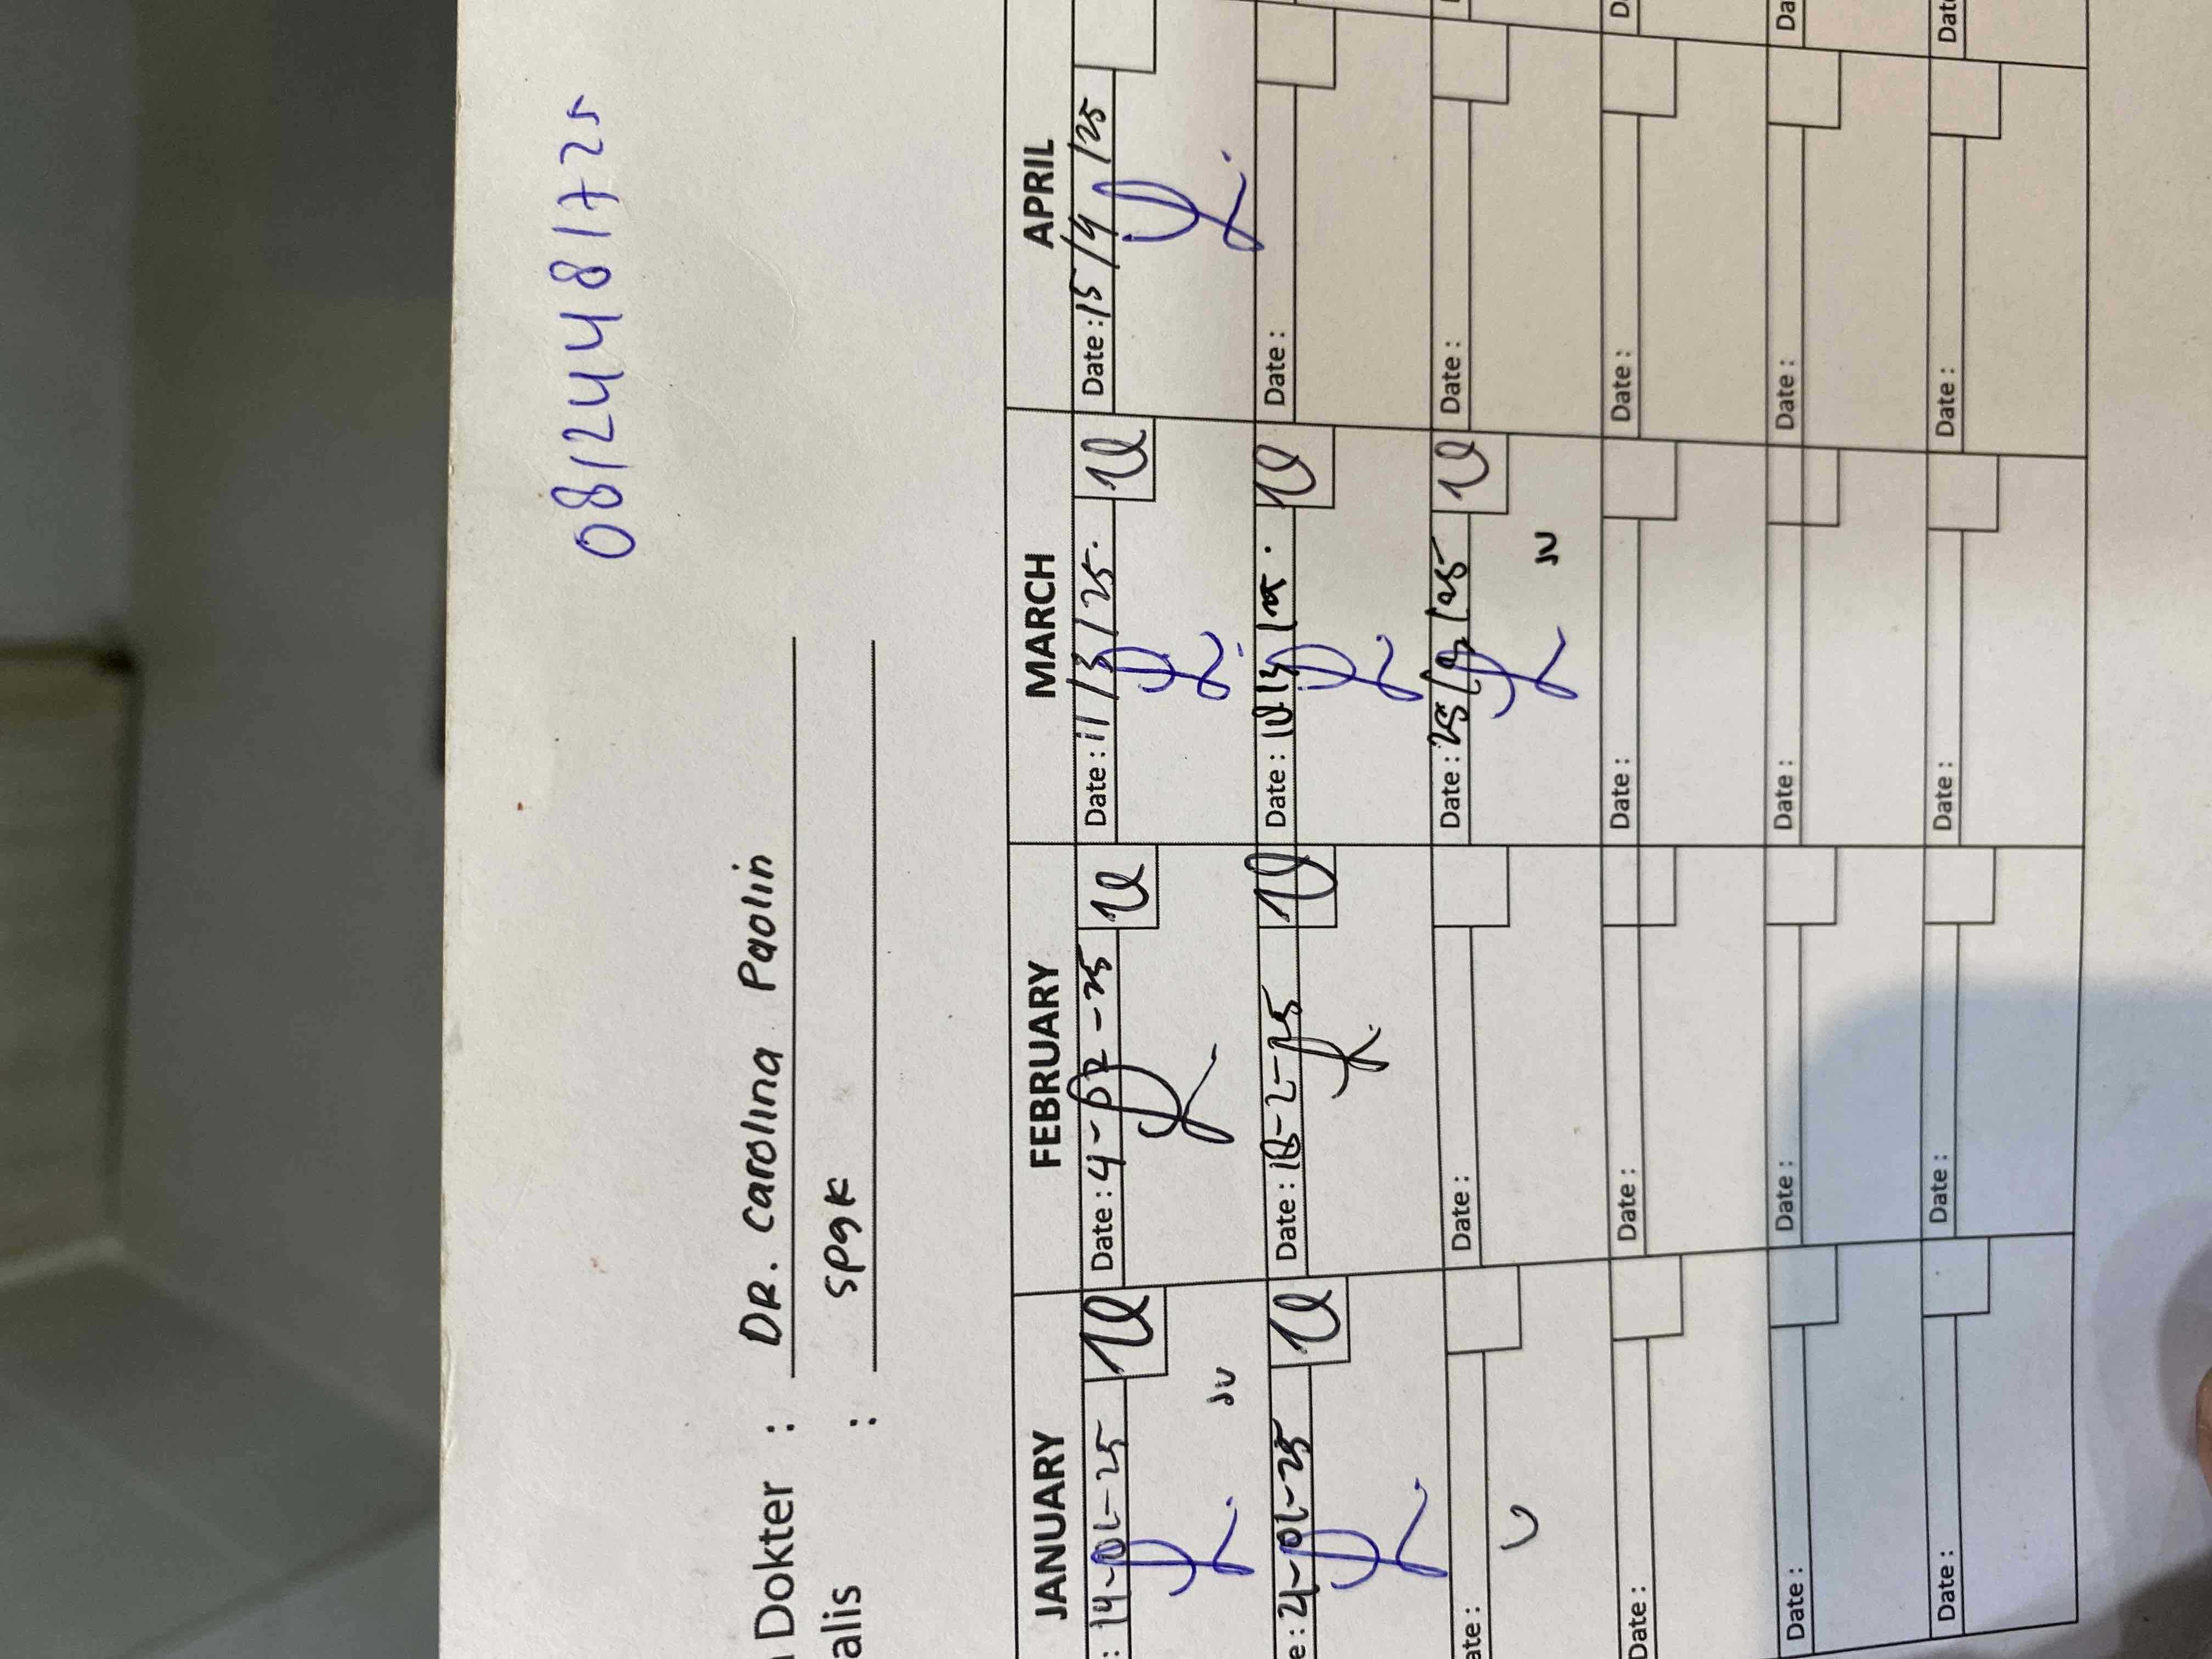 08124481725
Dokter : DR. Carolina Paolin
alis : SPGK
JANUARY FEBRUARY MARCH APRIL
: 14-01-25 Date : 4-02-25 Date : 11/3/25. Date : 15/4/25
e : 21-01-25 Date : 18-2-25 Date : Date :
ate : Date : Date : 25/3/25 Date :
Date : Date : Date : Date :
Date : Date : Date : Date :
Date : Date : Date : Date :